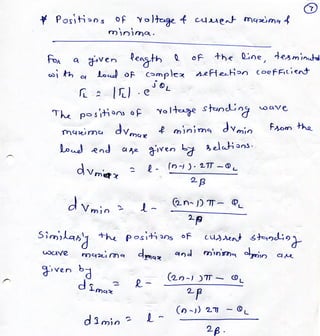 7
* Positions of voltage & current maxima & minima.
For a given length l of the line, terminated
with a load of complex reflection coefficient
Γ_L = |Γ_L| . e^{jΘ_L}
The positions of voltage standing wave
maxima dVmax & minima dVmin from the
load end are given by relations.
dVmax = l - (n-1).2π - Θ_L / 2β
dVmin = l - (2n-1)π - Θ_L / 2β
Similarly the positions of current standing
wave maxima dImax and minima dImin are
given by
dImax = l - (2n-1)π - Θ_L / 2β
dImin = l - (n-1) 2π - Θ_L / 2β.